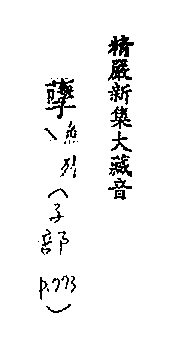 精嚴新集大藏音
孽、魚列（子部 p.773）